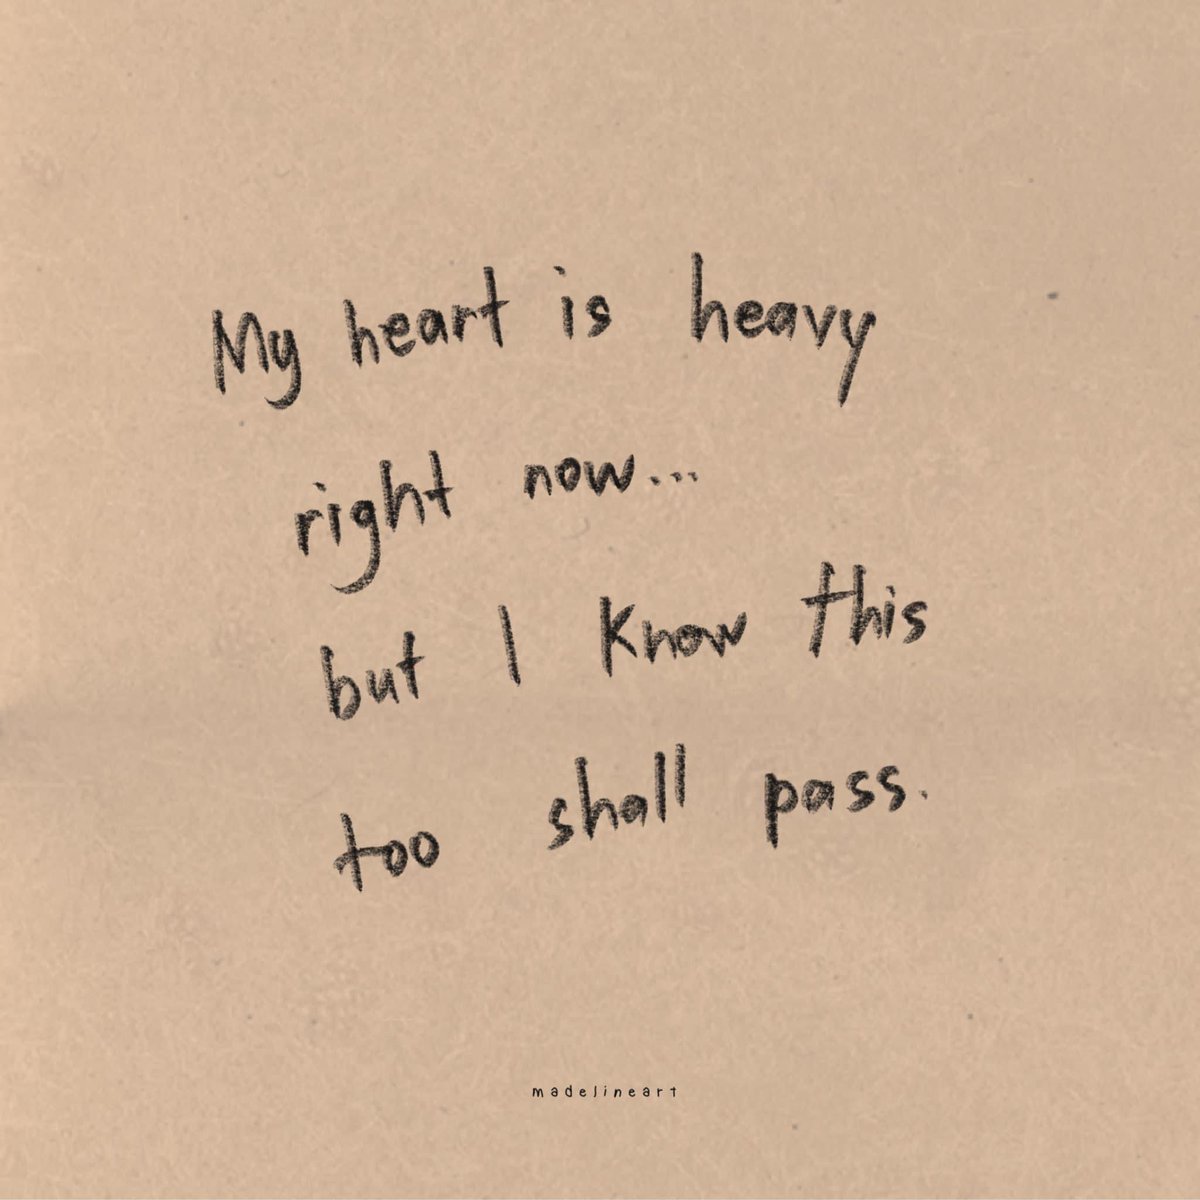 My heart is heavy
right now...
but I know this
too shall pass.
madelineart